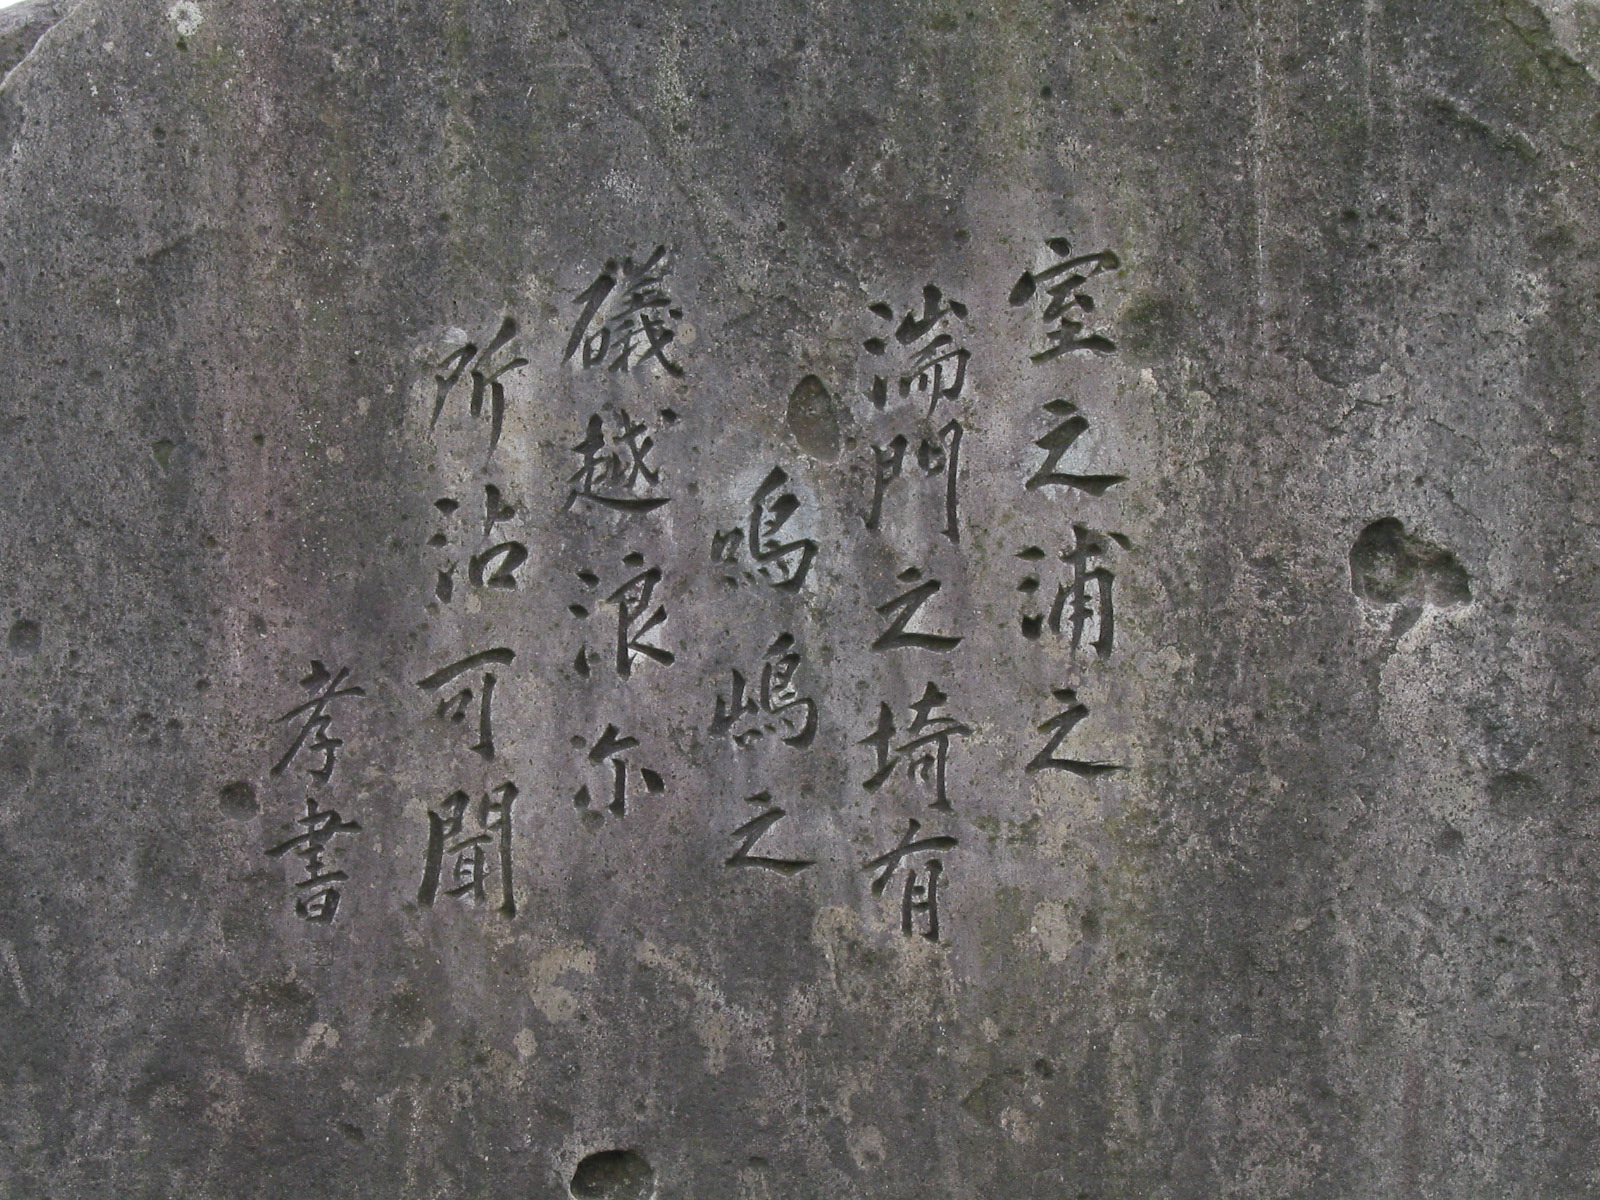 室之浦之
湍門之埼有
鳴嶋之
礒越浪尓
所沾可聞
孝書